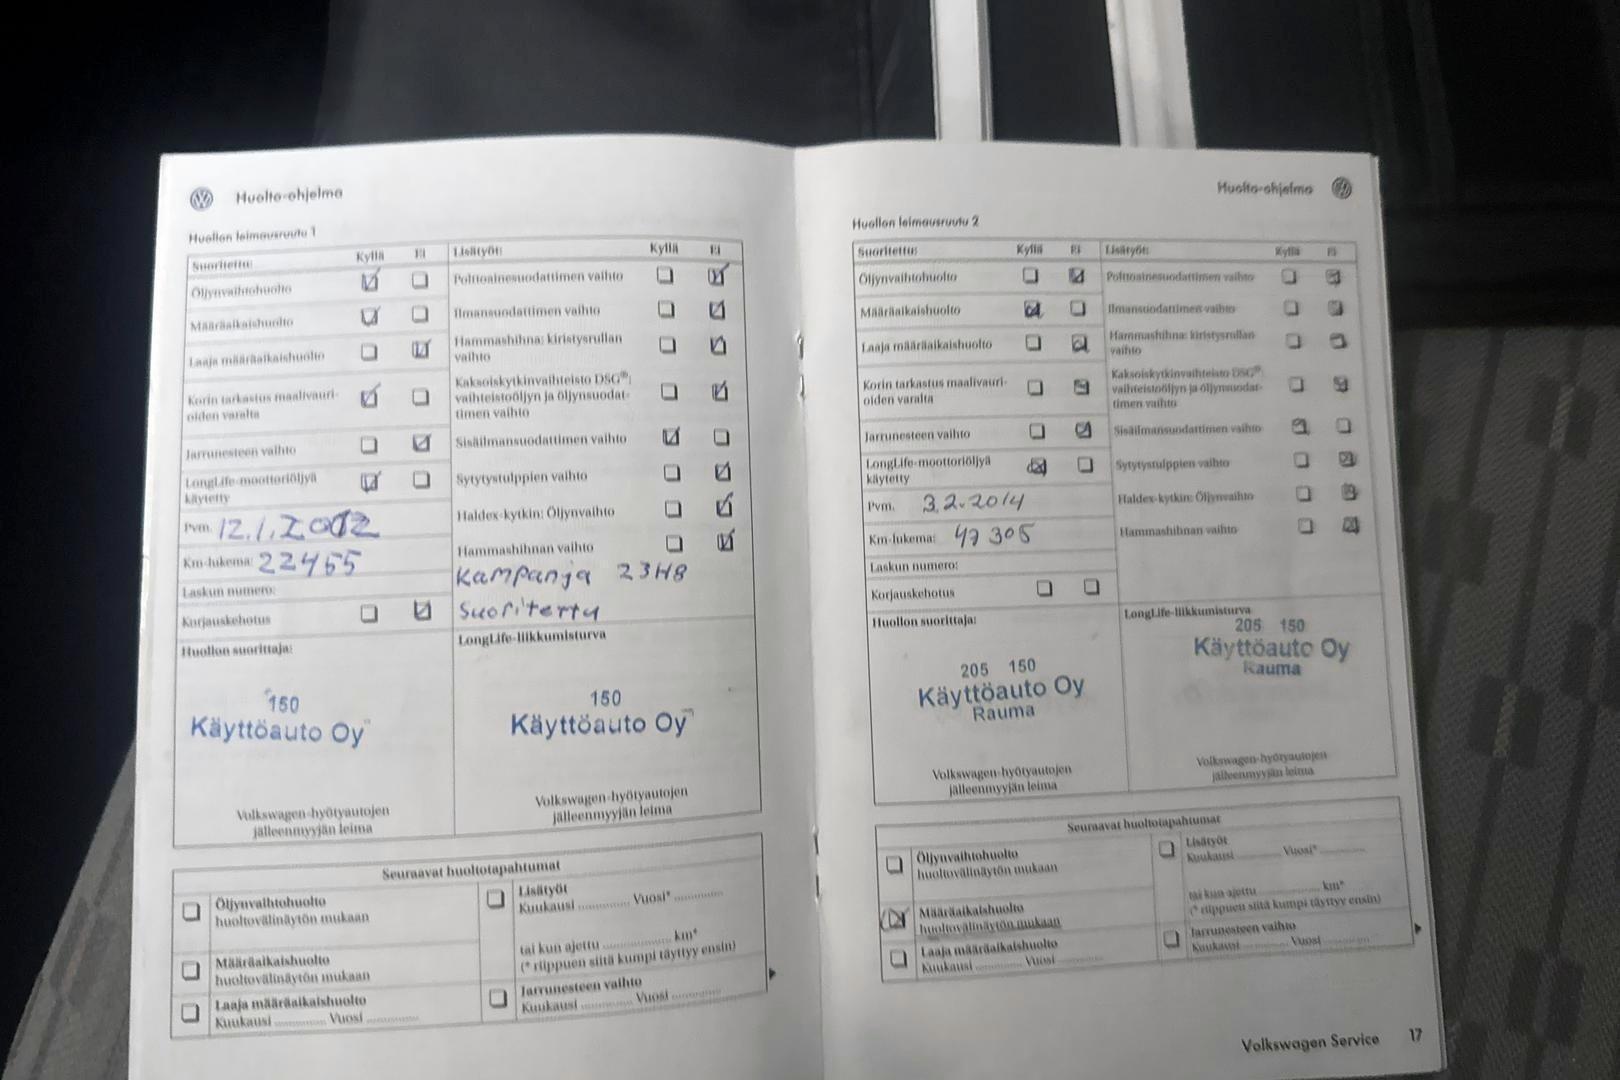 Huolto-ohjelma
Huollon leimausruutu 1
Suoritettu: Kyllä Ei
Öljynvaihtohuolto
Määräaikaishuolto
Laaja määräaikaishuolto
Korin tarkastus maalivauri-
oiden varalta
Jarrunesteen vaihto
LongLife-moottoriöljyä
käytetty
Pvm. 12.1.2012
Km-lukema: 22455
Laskun numero:
Korjauskehotus
Huollon suorittaja:
150
Käyttöauto Oy
Volkswagen-hyötyautojen
jälleenmyyjän leima
Lisätyöt: Kyllä Ei
Polttoainesuodattimen vaihto
Ilmansuodattimen vaihto
Hammashihna: kiristysrullan
vaihto
Kaksoiskytkinvaihteisto DSG®:
vaihteistoöljyn ja öljynsuodat-
timen vaihto
Sisäilmansuodattimen vaihto
Sytytystulppien vaihto
Haldex-kytkin: Öljynvaihto
Hammashihnan vaihto
Kampanja 23H8
Suoritettu
LongLife-liikkumisturva
150
Käyttöauto Oy
Volkswagen-hyötyautojen
jälleenmyyjän leima
Seuraavat huoltotapahtumat
Öljynvaihtohuolto
huoltovälinäytön mukaan
Määräaikaishuolto
huoltovälinäytön mukaan
Laaja määräaikaishuolto
Kuukausi ............ Vuosi ............
Lisätyöt
Kuukausi ............ Vuosi* ............
tai kun ajettu ................ km*
(* riippuen siitä kumpi täyttyy ensin)
Jarrunesteen vaihto
Kuukausi ............ Vuosi ............
Huolto-ohjelma
Huollon leimausruutu 2
Suoritettu: Kyllä Ei
Öljynvaihtohuolto
Määräaikaishuolto
Laaja määräaikaishuolto
Korin tarkastus maalivauri-
oiden varalta
Jarrunesteen vaihto
LongLife-moottoriöljyä
käytetty
Pvm. 3.2.2014
Km-lukema: 47305
Laskun numero:
Korjauskehotus
Huollon suorittaja:
205 150
Käyttöauto Oy
Rauma
Volkswagen-hyötyautojen
jälleenmyyjän leima
Lisätyöt: Kyllä Ei
Polttoainesuodattimen vaihto
Ilmansuodattimen vaihto
Hammashihna: kiristysrullan
vaihto
Kaksoiskytkinvaihteisto DSG®:
vaihteistoöljyn ja öljynsuodat-
timen vaihto
Sisäilmansuodattimen vaihto
Sytytystulppien vaihto
Haldex-kytkin: Öljynvaihto
Hammashihnan vaihto
LongLife-liikkumisturva
205 150
Käyttöauto Oy
Rauma
Volkswagen-hyötyautojen
jälleenmyyjän leima
Seuraavat huoltotapahtumat
Öljynvaihtohuolto
huoltovälinäytön mukaan
Määräaikaishuolto
huoltovälinäytön mukaan
Laaja määräaikaishuolto
Kuukausi ............ Vuosi ............
Lisätyöt
Kuukausi ............ Vuosi* ............
tai kun ajettu ................ km*
(* riippuen siitä kumpi täyttyy ensin)
Jarrunesteen vaihto
Kuukausi ............ Vuosi ............
Volkswagen Service 17